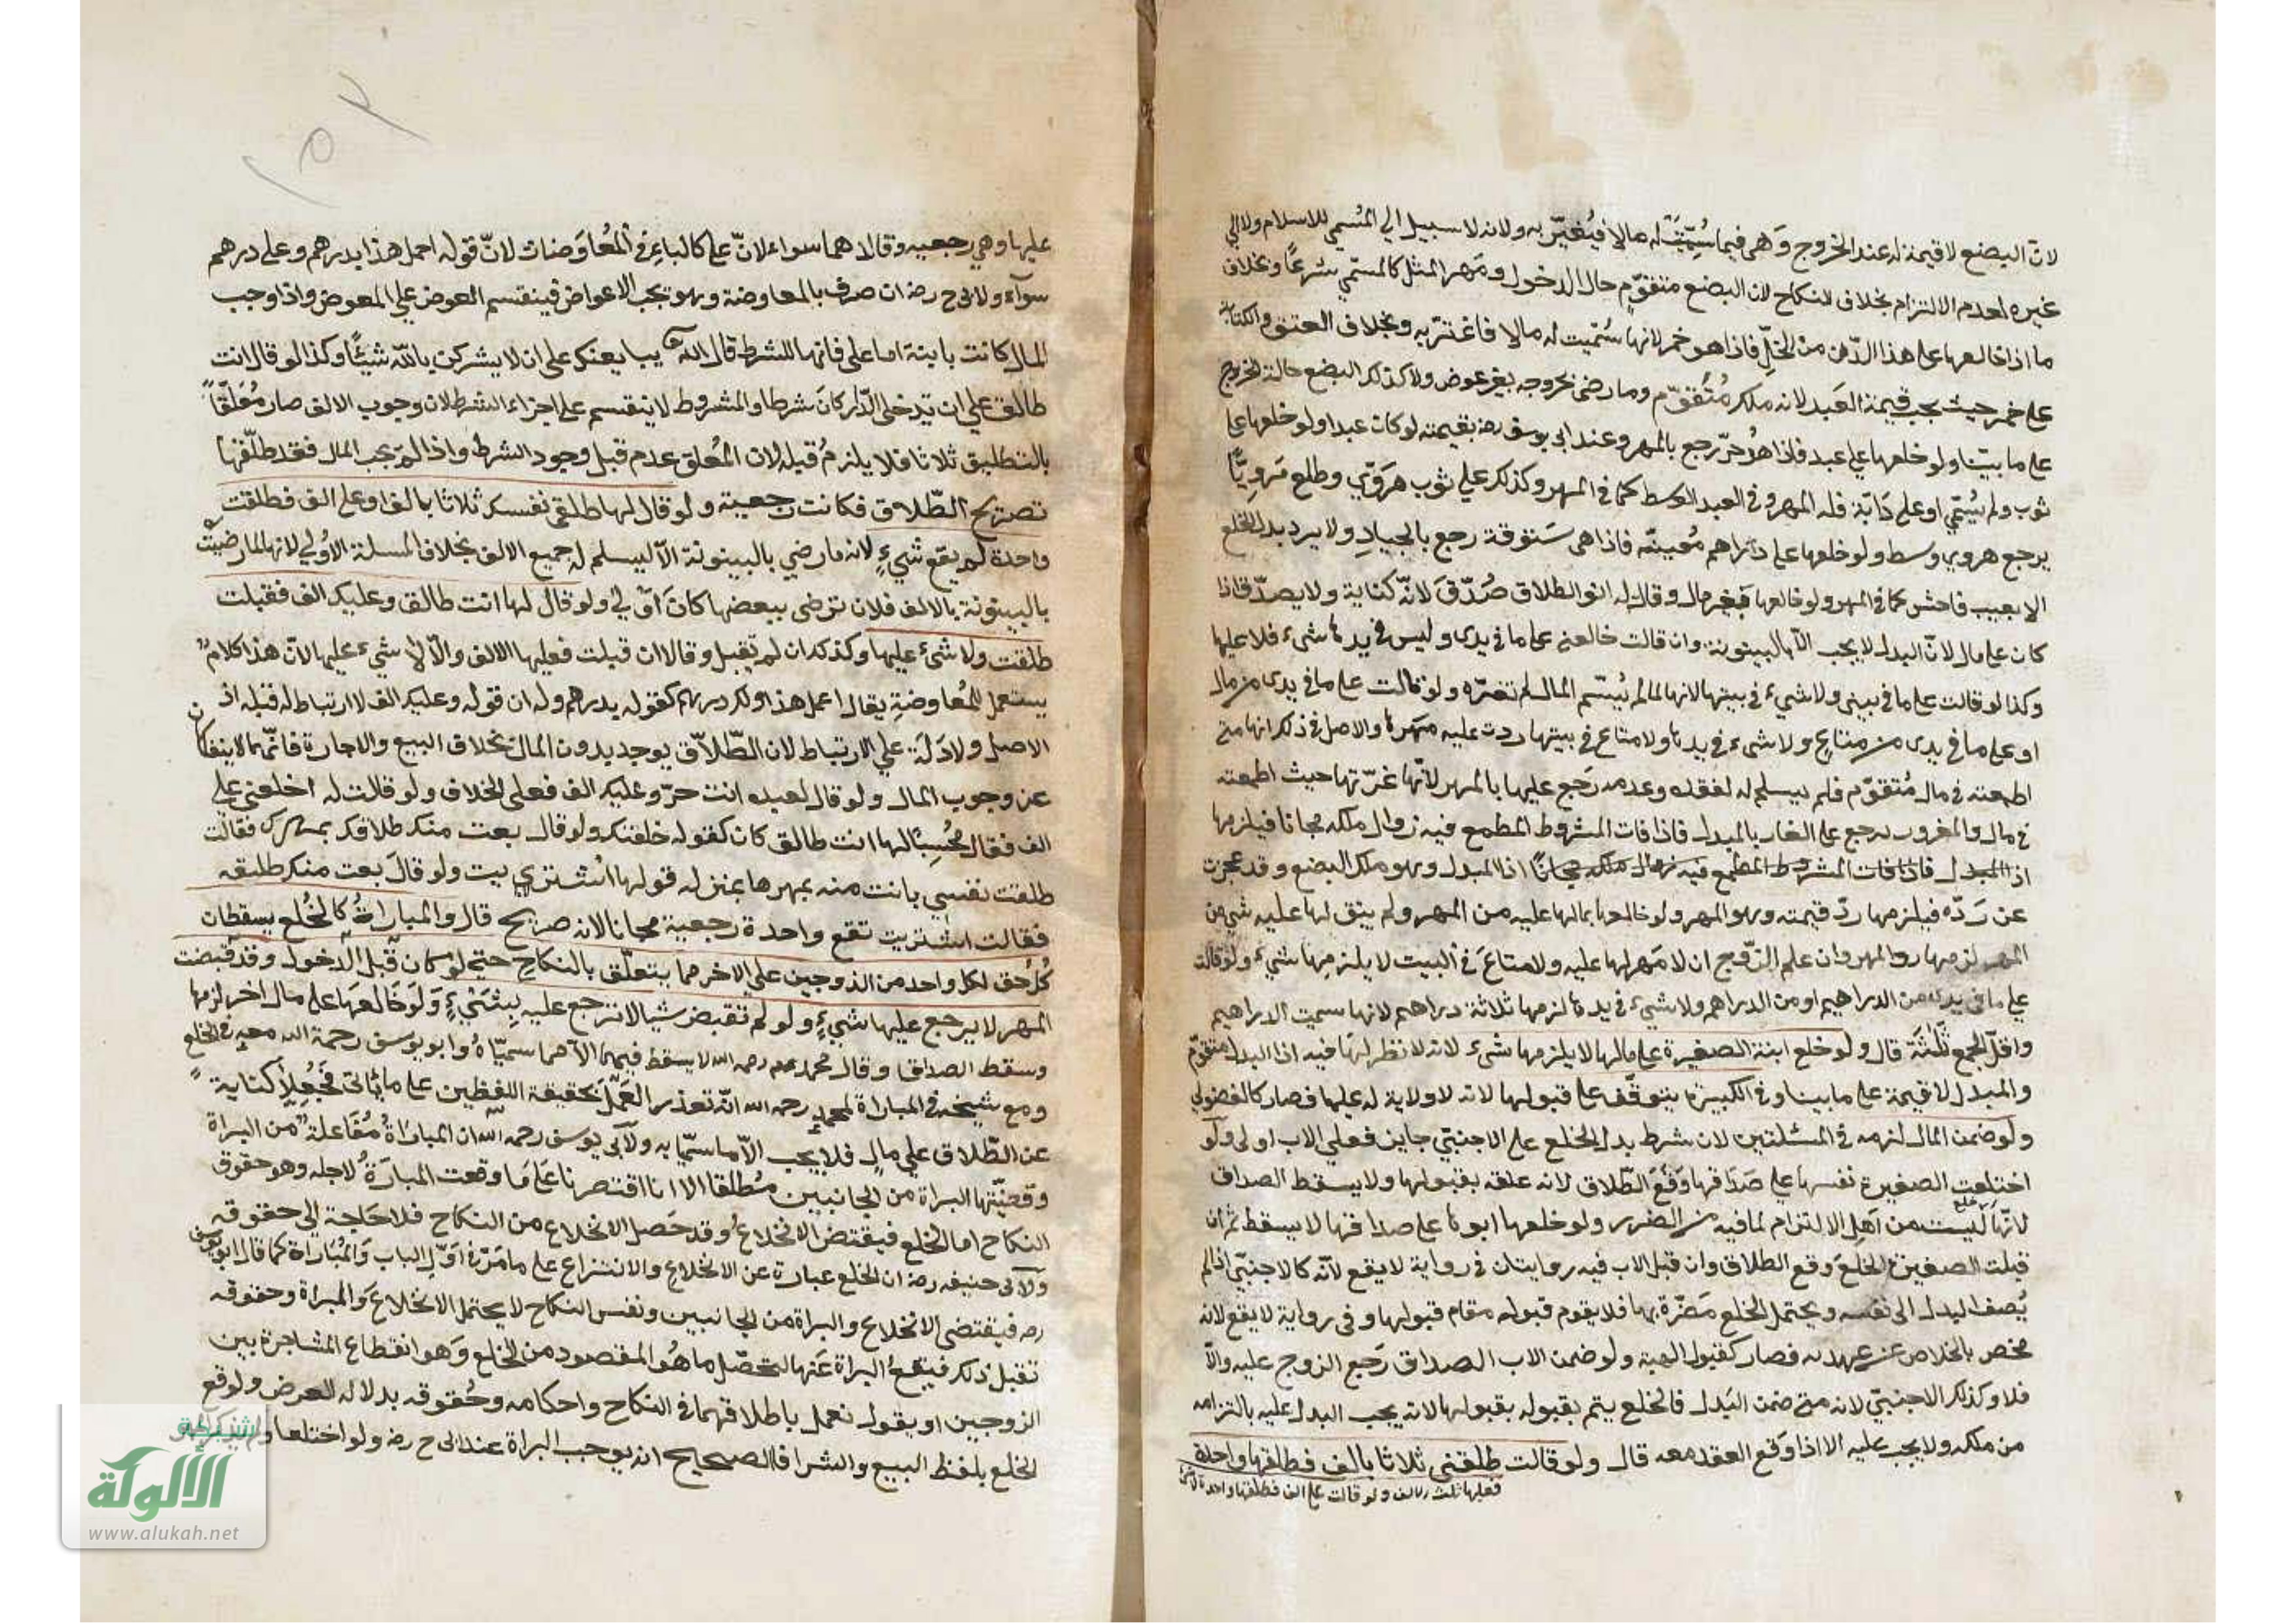 لان البضع لا قيمة له عند الخروج وهى فيما سُمّيت له مالا فيغير به ولانه لا سبيل الي المُسمي للاسلام ولا الي
غيره لعدم الالتزام بخلاف النكاح لان البضع متقوّم حال الدخول ومهر المثل كالمسمّي شرعًا وبخلاف
ما اذا خالعها على هذا الدّن من الخلّ فاذا هو خمر لانها سُمّيت له مالا فاغترّ به وبخلاف العتق والكتابة
على خمر حيث يجب قيمة العبد لانه ملك مُتقوّم وما رضى بخروجه بغير عوض ولا كذلك البضع حالة الخروج
على ما بيّنا ولو خلعها علي عبد فاذا هُو حرّ رجع بالمهر وعند ابى يوسف رحه بقيمته لو كان عبدا ولو خلعها على
ثوب ولم يُسمّي او على دَابّة فله المهر وفى العبد الوسط كما فى المهر وكذلك علي ثوب هَرَوّي وطلع مَروِيًّا
يرجع هروي وسط ولو خلعها على دراهم مُعينّه فاذا هى سَتوقة رجع بالجيادِ ولا يرد بدل الخلع
الا بعيب فاحش كما فى المهر ولو خالعها بغير مال وقال له انو الطلاق صُدّقَ لانّه كناية ولا يصدّق اذا
كان على مال لانّ البدل لا يجب الّا بالبينونة وان قالت خالعنى على ما فى يدى وليس فى يدها شىء فلا عليها
وكذا لو قالت على ما فى بيتى ولا شيء فى بيتها لانها لمالم يُسّم المال لم تغرّه ولو قالت على ما فى يدى من مال
او على ما فى يدى من متاعٍ ولا شىء فى يدها ولا متاع فى بيتها ردت عليه مهرها والاصل فى ذلك انها متى
اطمعته فى مال مُتقوّم فلم يسلم له لفقده وعدمه رَجع عليها بالمهر لانّها غرّتها حيث اطمعته
فى مال والمغرور يرجع على الغار بالمبدل فاذا فات المشروط المطمع فيه زوال ملكه مجانا فيلزمها
اذا المبدل فاذا فات المشروط المطمع فيه زوال ملكه مجانًا اذا المبدل وهو ملك البضع وقد عجزت
عن رَدّه فيلزمها ردّ قيمته وهو المهر ولو خالعها بمالها عليه من المهر ولم يبق لها عليه شئ من
المهر لزمها رد المهر وان علم الزّوج ان لا مَهر لها عليه ولا متاعَ فى البيت لا يلزمها شيء ولو قالت
على ما فى يدى من الدراهم او من الدراهم ولا شيء فى يدها لزمها ثلاثة دراهم لانها سميت الدراهم
واقلّ الجمع ثَلٰثَة قال ولو خلع ابنة الصغيرة على مالها لا يلزمها شىء لانه لا نظر لها فيه اذ البدل متقوّم
والمبدل لا قيمة على ما بينا وفى الكبيرة يتوقّف على قبولها لانه لا ولاية له عليها فصار كالفضولي
ولو ضمن المال لزمه فى المسئلتين لان شرط بدل الخلع على الاجنبّي جاين فعلي الاب اولى ولو
اختلعت الصغيرة نفسها علي صَدَاقها وَقَعَ الطّلاق لانه علقه بقبولها ولا يسقط الصداق
لانّها ليست من اهلِ الالتزام لما فيه من الضرر ولو خلعها ابوها على صداقها لا يسقط ثم ان
قبلت الصغيرة الخلعَ وقع الطلاق وان قبل الاب فيه روايتان فى رواية لا يقع لانّه كالاجنبّي اذا لم
يُضف البدل الى نفسه ويحتمل الخلع مَضرّة بها فلا يقوم قبوله مقام قبولها وفى رواية لا يقع لانه
مخص بالخلاص عن عهدته فصار كقبول الهبة ولو ضمن الاب الصداق رَجع الزوج عليه والّا
فلا وكذلك الاجنبيّ لانه متى ضمن البَدل فالخلع يتم بقبوله بقبولها لانه يجب البدل عليه بالتزامه
من ملكه ولا يجب عليه الا اذا وَقع العقد معه قال ولو قالت طلقنى ثلاثا بالف فطلقها واحدة
فعليها ثلث الالف ولو قالت على الف فطلقها واحدة لا شئ
عليها وهي رجعيه وقالا هما سواء لانّ على كالباءِ فى المُعاوَضات لانّ قوله احمل هذا بدرهم وعلى درهم
سوآء ولابى ح رضه ان صرف بالمعاوضة وهو تجب الاعواض فينقسم العوض علي المعوض واذا وجب
المال كانت باينة اما على فانها للشرط قال الله تعـ يبايعنك على ان لا يشركن بالله شيئًا وكذا لو قال انت
طالق علي ان تدخلى الدّار كانَ شرطا والمشروط لا ينقسم على اجزاء الشرط لان وجوب الالف صار مُعَلّقاً
بالتطليق ثلاثا فلا يلزمُ قبله لان المُعلق عدم قبل وجود الشرط واذا لم يجب المال فقد طلّقها
بتصريح الطّلاق فكانت رجعية ولو قال لها طلقى نفسك ثلاثا بالف او على الف فطلقت
واحدة لم يقع شيءٍ لانه ما رضي بالبينونة الّا ليسلم له جميع الالف بخلاف المسلة الاوُلي لانها لما رضيتْ
بالبينونة بالالف فلان ترضى ببعضها كانَ اوّلي ولو قال لها انت طالق وعليك الف فقبلت
طلقت ولا شىء عليها وكذكد ان لم تقبل وقالا ان قبلت فعليها الالف والّا لا شيء عليها لانّ هذا كلام
يستعمل للمُعاوضةِ يقال اعمل هذا ولك درهم كقوله بدرهم وله ان قوله وعليك الف لا ارتباط له قبله اذ
الاصل ولا دَلَة علي الارتباط لان الطّلاق يوجد بدون المال بخلاف البيع والاجارة فانّهما لا ينفكان
عن وجوب المال ولو قال لعبده انت حرّ وعليك الف فعلى الخلاف ولو قالت له اخلعنى على
الف فقال مُجيبًا لها انت طالق كان كقوله خلعتك ولو قال بعت منك طلاقك بمهرك فقالت
طلقت نفسي بانت منه بمهرها بمنزله قولها اشتريت ولو قالَ بعت منك طلبقه
فقالت اشتريت تقع واحدة رجعية مجانا لانه صريح قال والمباراةُ كالخُلع يسقطان
كُلّ حق لكل واحد من الزوجين علي الاخر مما يتعلّق بالنكاحِ حتى لو كانَ قبل الدخول وقد قبضت
المهر لا يرجع عليها شيءٍ ولو لم تقبض شيا لا ترجع عليه بِشَيْءٍ وَلَو خَالعهَا على مال اخر لزمها
وسقط الصداق وقال محمد رحمه الله لا يسقط فيهما الّا ما سميّاهُ وابو يوسف رحمة الله معه فى الخلع
ومع شيخه فى المباراة لمحمدٍ رحمه الله انّه تعذر العَمَل بحقيقة اللفظين على ما ياتى فجُعِلا كناية
عن الطّلاق علي مالٍ فلا يجب الّا ما سمّيا به ولابى يوسف رحمه الله ان المباراةُ مُفاعلة من البراة
وقضيّتها البراة من الجانبين مُطلقا الا انا اقتصرنا على مَا وقعت المبارَةُ لاجله وهو حقوق
النكاح اما الخلع فيقتضى الانخلاعُ وقد حَصل الانخلاع من النكاح فلا حَاجة الى حقوقه
ولابى حنيفه رضه ان الخلع عبارة عن الانخلاعِ والانتزاع على ما مَرّ فى اوّل الباب وَالمُبَاراة كما قال ابو يوسف
رحه فيقتضى الانخلاع والبراة من الجانبين ونفس النكاح لا يحتمل الانخلاعَ وَالمبراة وحقوقه
تقبل ذلك فيقعُ البراة عَنها لتحصّل ما هُو المقصود من الخلع وَهو انقطاع المشاجرة بين
الزوجين او يقول نعمل باطلاقهما فى النكاح واحكامه وحُقوقه بدلاله العرض ولو قع
الخلع بلفظ البيع والشرا فالصحيح انه يوجب البراة عند ابى ح رضه ولو اختلعا ولم يذكرا
شبكة
الألوكة
www.alukah.net